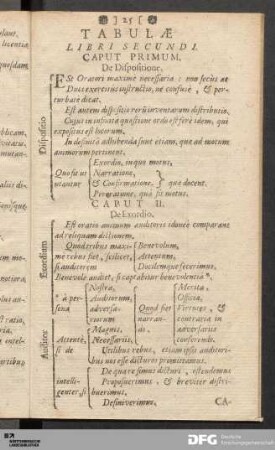 ] 25 [
TABULÆ
LIBRI SECUNDI.
CAPUT PRIMUM.
De Dispositione.
Dispositio
ESt Oratori maxime necessaria: non secus ac
Duci exercitus instructio, ne confuse, & per-
turbate dicat.
Est autem dispositio rerū inventarum distributio.
Cujus in infinita quæstione ordo est fere idem, qui
expositus est locorum.
In definita adhibenda sunt etiam, quæ ad motum
animorum pertinent.
Exordiū, in quo motus,
Narratione,
& Confirmatione,
quæ docent.
Peroratione, quā sit motus.
CAPUT II.
De Exordio.
Exordium
Est oratio animum auditoris idonee comparans
ad reliquam dictionem.
Quod tribus maxi-
me rebus fiet, scilicet,
si auditorem
Benevolum,
Attentum,
Docilemque fecerimus.
Benevole audiet, si captabitur benevolentia
Auditor
* à per-
sona
Nostra,
Auditorum,
adversa-
riorum
Quod fiet
narran-
Merita,
Officia,
Virtutes, &
contraria in
adversarios
conferendo.
Attentè,
si de
Magnis,
Necessariis,
Utilibus rebus, etiam ipsis auditori-
bus nos esse dicturos promittamus.
intelli-
genter, si
De quare simus dicturi, ostendemus
Proposuerimus, & breviter distri-
buerimus,
Definiverimus,
CA-
DFG
Deutsche
Forschungsgemeinschaft